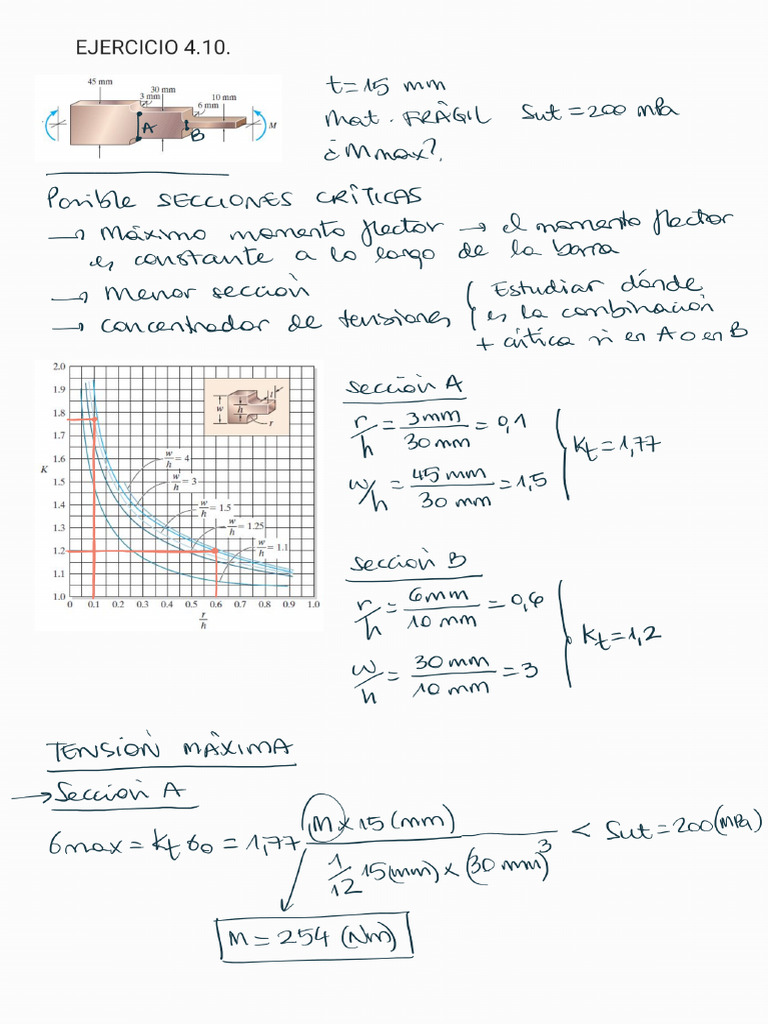 EJERCICIO 4.10.
45 mm
30 mm
3 mm
10 mm
6 mm
A
B
M
t=15 mm
Mat. FRÀGIL Sut=200 MPa
¿Mmax?
Posible SECCIONES CRÍTICAS
→ Máximo momento flector → el momento flector
es constante a lo largo de la barra
→ Menor sección
→ concentrador de tensiones
Estudiar dónde
es la combinación
+ crítica si en A o en B
2.0
1.9
1.8
1.7
1.6
1.5
1.4
1.3
1.2
1.1
1.0
K
0 0.1 0.2 0.3 0.4 0.5 0.6 0.7 0.8 0.9 1.0
r/h
w/h = 4
w/h = 3
w/h = 1.5
w/h = 1.25
w/h = 1.1
w
h
t
r
Sección A
r/h = 3mm/30 mm = 0,1
w/h = 45 mm/30 mm = 1,5
Kt=1,77
Sección B
r/h = 6mm/10 mm = 0,6
w/h = 30 mm/10 mm = 3
Kt=1,2
TENSIÓN MÁXIMA
→ Sección A
σmax = Kt σo = 1,77 M x 15 (mm) / 1/12 15(mm) x (30 mm)³ < Sut = 200 (MPa)
M = 254 (Nm)